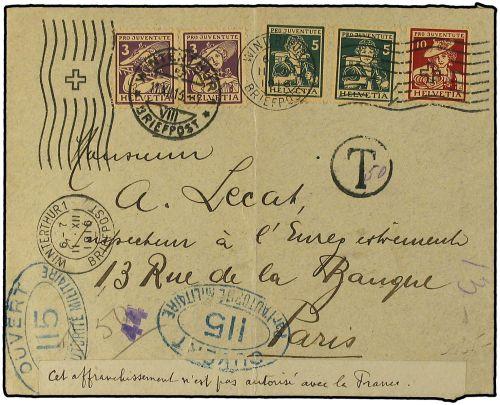 PRO JUVENTUTE PRO JUVENTUTE PRO JUVENTUTE PRO JUVENTUTE PRO JUVENTUTE
3 3 5 5 10
HELVETIA HELVETIA HELVETIA HELVETIA HELVETIA
WINTERTHUR
VIII
BRIEFPOST
WINTERTHUR
BRIEFPOST
Monsieur
T
50
A. Lecat,
WINTERTHUR 1
BRIEFPOST
Inspecteur à l'Enregistrement
13 Rue de la Banque
Paris
OUVERT
AUTORITÉ MILITAIRE
115
44
OUVERT
PAR L'AUTORITÉ MILITAIRE
115
Cet affranchissement n'est pas autorisé avec la France.